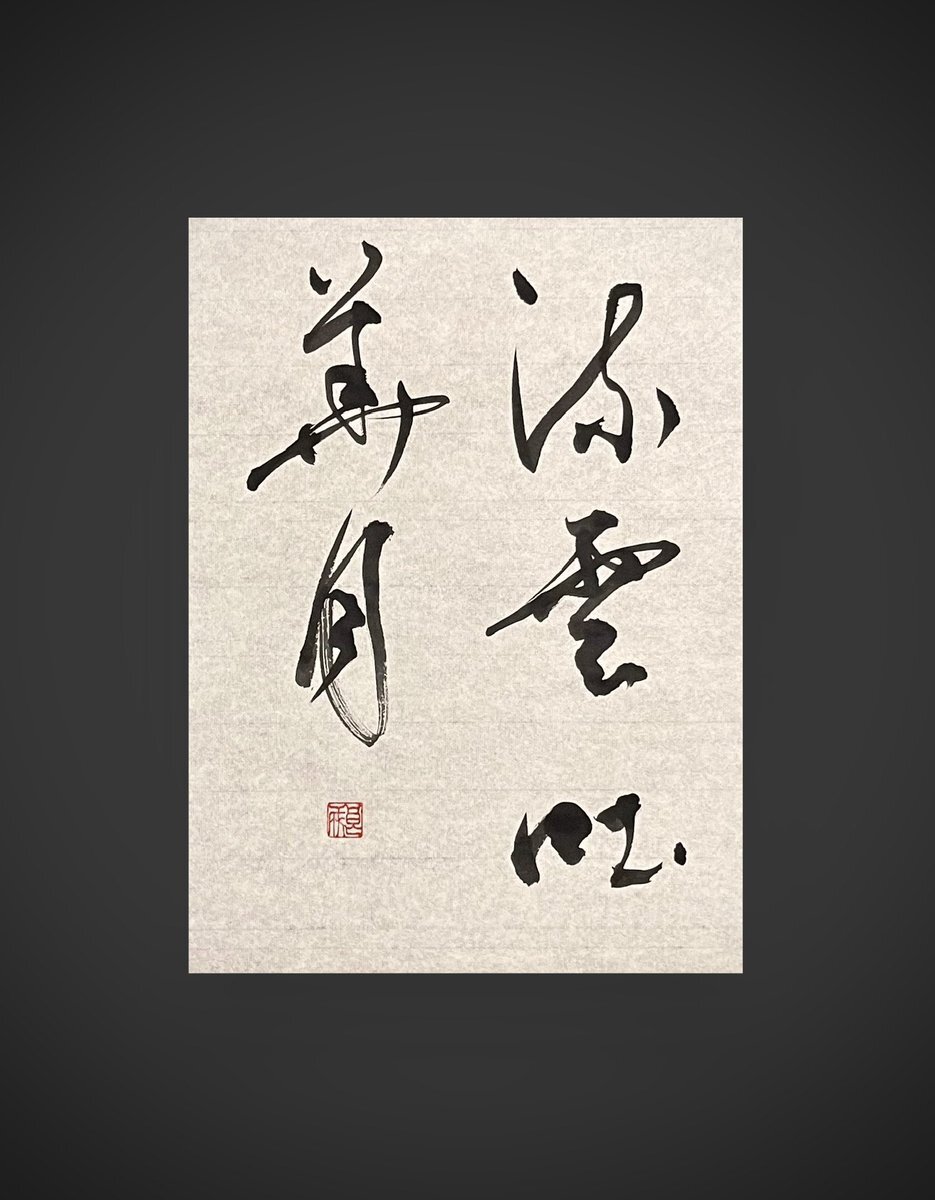 流雲吐
華月